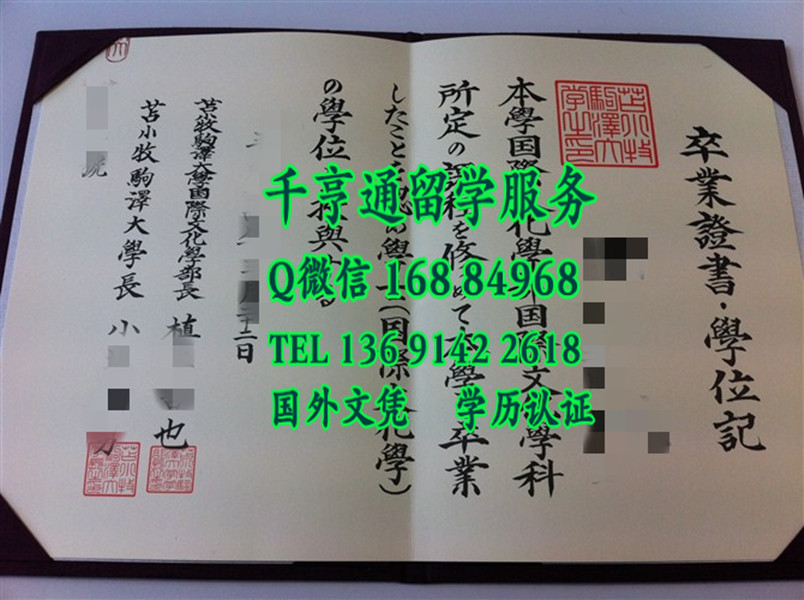 卒業證書・學位記
苫小牧
駒澤大
學之印
本學国際文化學部国際文化學科
所定の課程を修めて本學を卒業
したことを認め學士(国際文化學)
の學位を授與する
二十二日
苫小牧駒澤大學国際文化學部長 植 也
苫小牧駒澤大學長 小
號
千亨通留学服务
Q微信 168 84968
TEL 136 9142 2618
国外文凭 学历认证